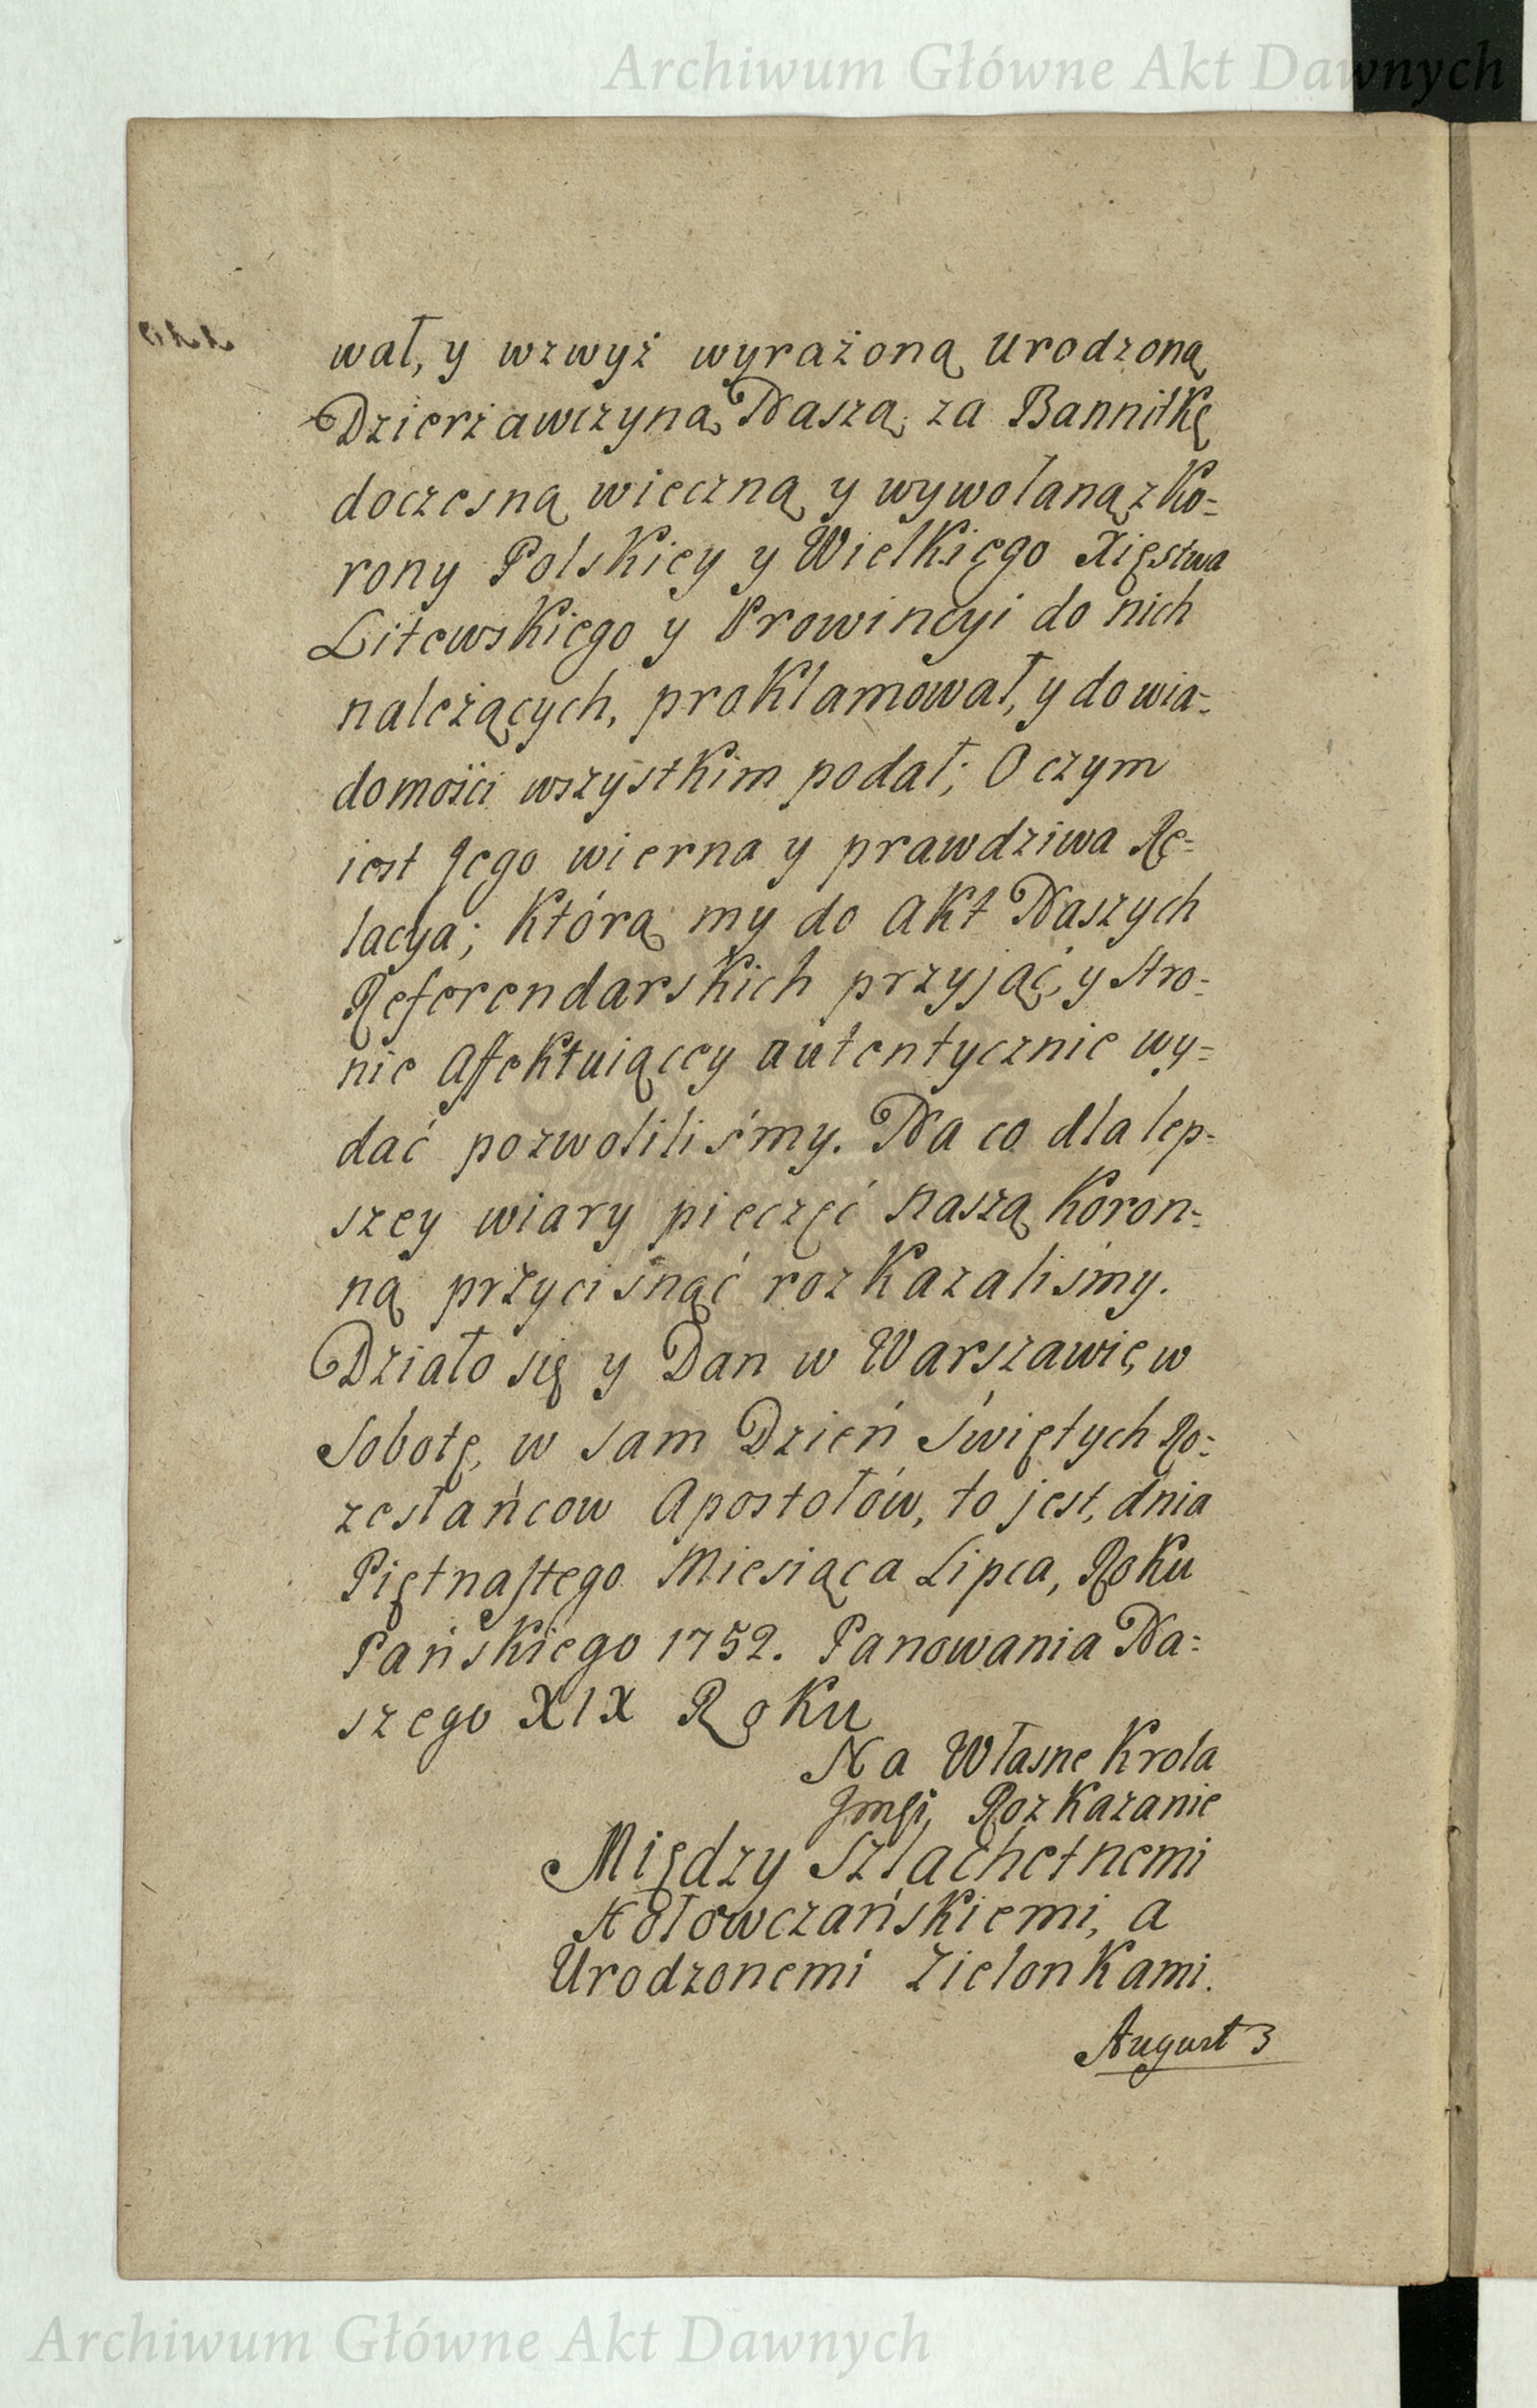 Archiwum Główne Akt Dawnych
wał, y wzwyż wyrażoną Urodzoną
Dzierżawczyną Naszą za Bannitkę
doczesną wieczną y wywołaną z Ko=
rony Polskiey y Wielkiego Xięstwa
Litewskiego y Prowincyi do nich
należących, proklamował, y do wia=
domości wszystkim podał; O czym
iest Jego wierna y prawdziwa Re=
lacya; którą my do Akt Naszych
Referendarskich przyjąć, y stro=
nie Affektuiącey autentycznie wy=
dać pozwoliliśmy. Na co dla lep=
szey wiary pieczęć Naszą Koron=
ną przycisnąć rozkazaliśmy.
Działo się y Dan w Warszawie, w
Sobotę, w sam Dzień Świętych Ro=
zesłańcow Apostołów, to jest, dnia
Piętnastego Miesiąca Lipca, Roku
Pańskiego 1752. Panowania Na=
szego XIX Roku
Na Własne Krola
Jmći Rozkazanie
Między Szlachetnemi
Hołowczańskiemi, a
Urodzonemi Zielonkami.
August 3
Archiwum Główne Akt Dawnych